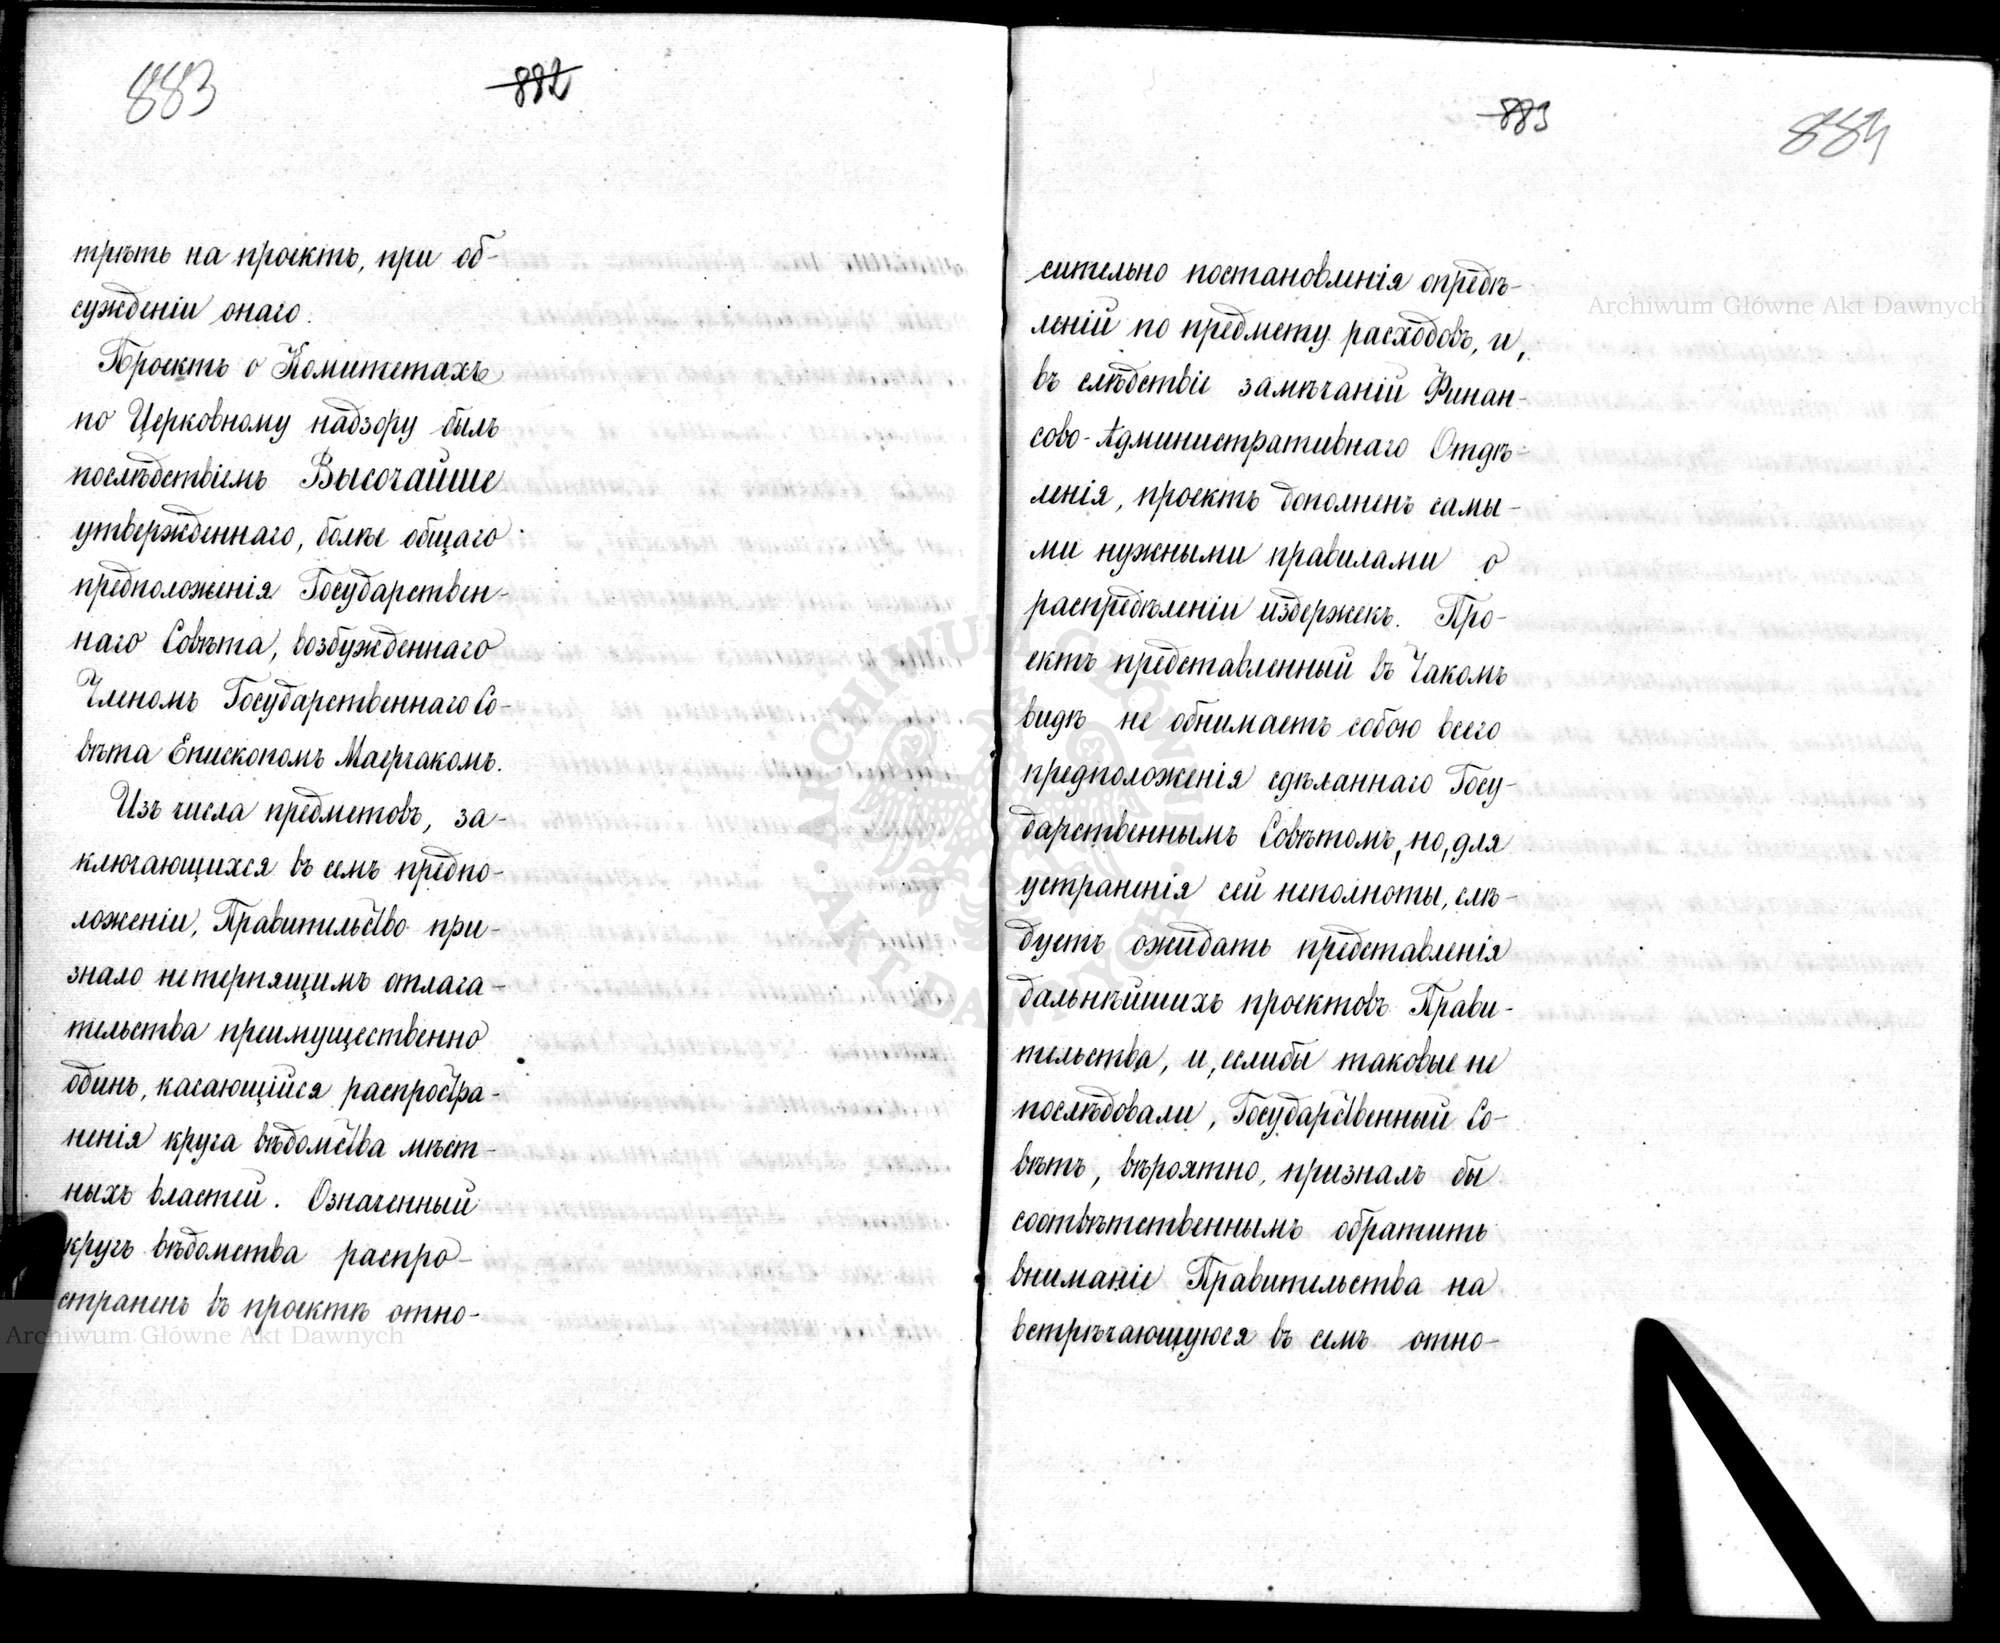 883
882
трѣть на проектъ, при об-
сужденіи онаго.
Проектъ о Комитетахъ
по Церковному надзору былъ
послѣдствіемъ Высочайше
утвержденнаго, болѣе общаго
предположенія Государствен-
наго Совѣта, возбужденнаго
Членомъ Государственнаго Со-
вѣта Епископомъ Маерчакомъ.
Изъ числа предметовъ, за-
ключающихся въ семъ предпо-
ложеніи, Правительство при-
знало нетерпящимъ отлага-
тельства преимущественно
одинъ, касающійся распростра-
ненія круга вѣдомства мѣст-
ныхъ властей. Означенный
кругъ вѣдомства распро-
страненъ въ проектѣ отно-
883
884
сительно постановленія опредѣ-
леній по предмету расходовъ, и,
въ слѣдствіе замѣчаній Финан-
сово-Административнаго Отдѣ-
ленія, проектъ дополненъ самы-
ми нужными правилами о
распредѣленіи издержекъ. Про-
ектъ представленный въ такомъ
видѣ не обнимаетъ собою всего
предположенія сдѣланнаго Госу-
дарственнымъ Совѣтомъ, но, для
устраненія сей неполноты, слѣ-
дуетъ ожидать представленія
дальнѣйшихъ проектовъ Прави-
тельства, и, еслибы таковые не
послѣдовали, Государственный Со-
вѣтъ, вѣроятно, призналъ бы
соотвѣтственнымъ обратить
вниманіе Правительства на
встрѣчающуюся въ семъ отно-
Archiwum Główne Akt Dawnych
Archiwum Główne Akt Dawnych
ARCHIWUM GŁÓWNE
AKT DAWNYCH